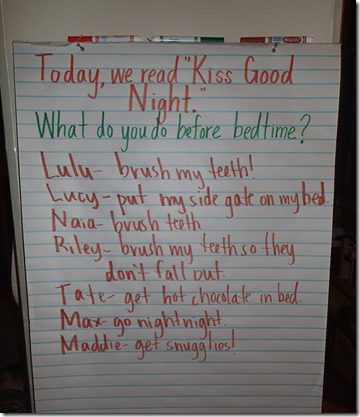 Today, we read "Kiss Good
Night."
What do you do before bedtime?
Lulu- brush my teeth!
Lucy- put my side gate on my bed.
Naia- brush teeth
Riley- brush my teeth so they
don't fall out.
Tate- get hot chocolate in bed.
Max- go night night.
Maddie- get snugglies!